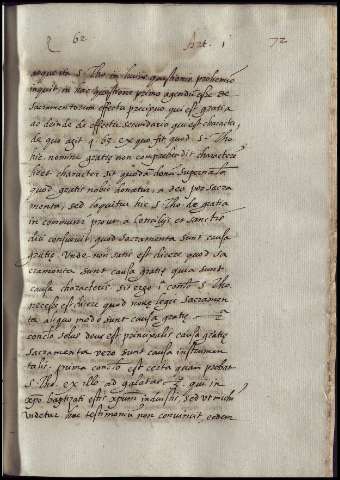 q 62 Art. 1 72
atque ita S. Tho. in huius quæstionis prohemio
inquit, in hac quæstione primo agendū esse de
sacramentorum effectu præcipuo qui est gratia
ac deinde de effectu secundario qui est character,
de quo agit q 63. ex quo fit quod S. Tho.
hic nomine gratiæ non comprehendit characterē
licet character sit quodā donū supernãle
quod gratis nobis donatur a deo per sacra
menta, sed loquitur hic S. Tho. de gratia
in communi prout a conciliis et sanctis
dici consuevit, quod sacramenta sunt causa
gratiæ. Unde non satis est dicere quod sa
cramenta sunt causa gratiæ quia sunt
causa characteris sic ergo S. Tho.
necesse est dicere quod novæ legis sacramen
ta aliquo modo sunt causa gratiæ.
conclo solus deus est principalis causa gratiæ
sacramenta vero sunt causa instrumen
talis. prima conclo est certa quam probat
S. Tho. ex illo ad galatas qui in
xp̄o baptizati estis xp̄um induistis, sed ut mihi
videtur hoc testimoniū non convincit, eodem